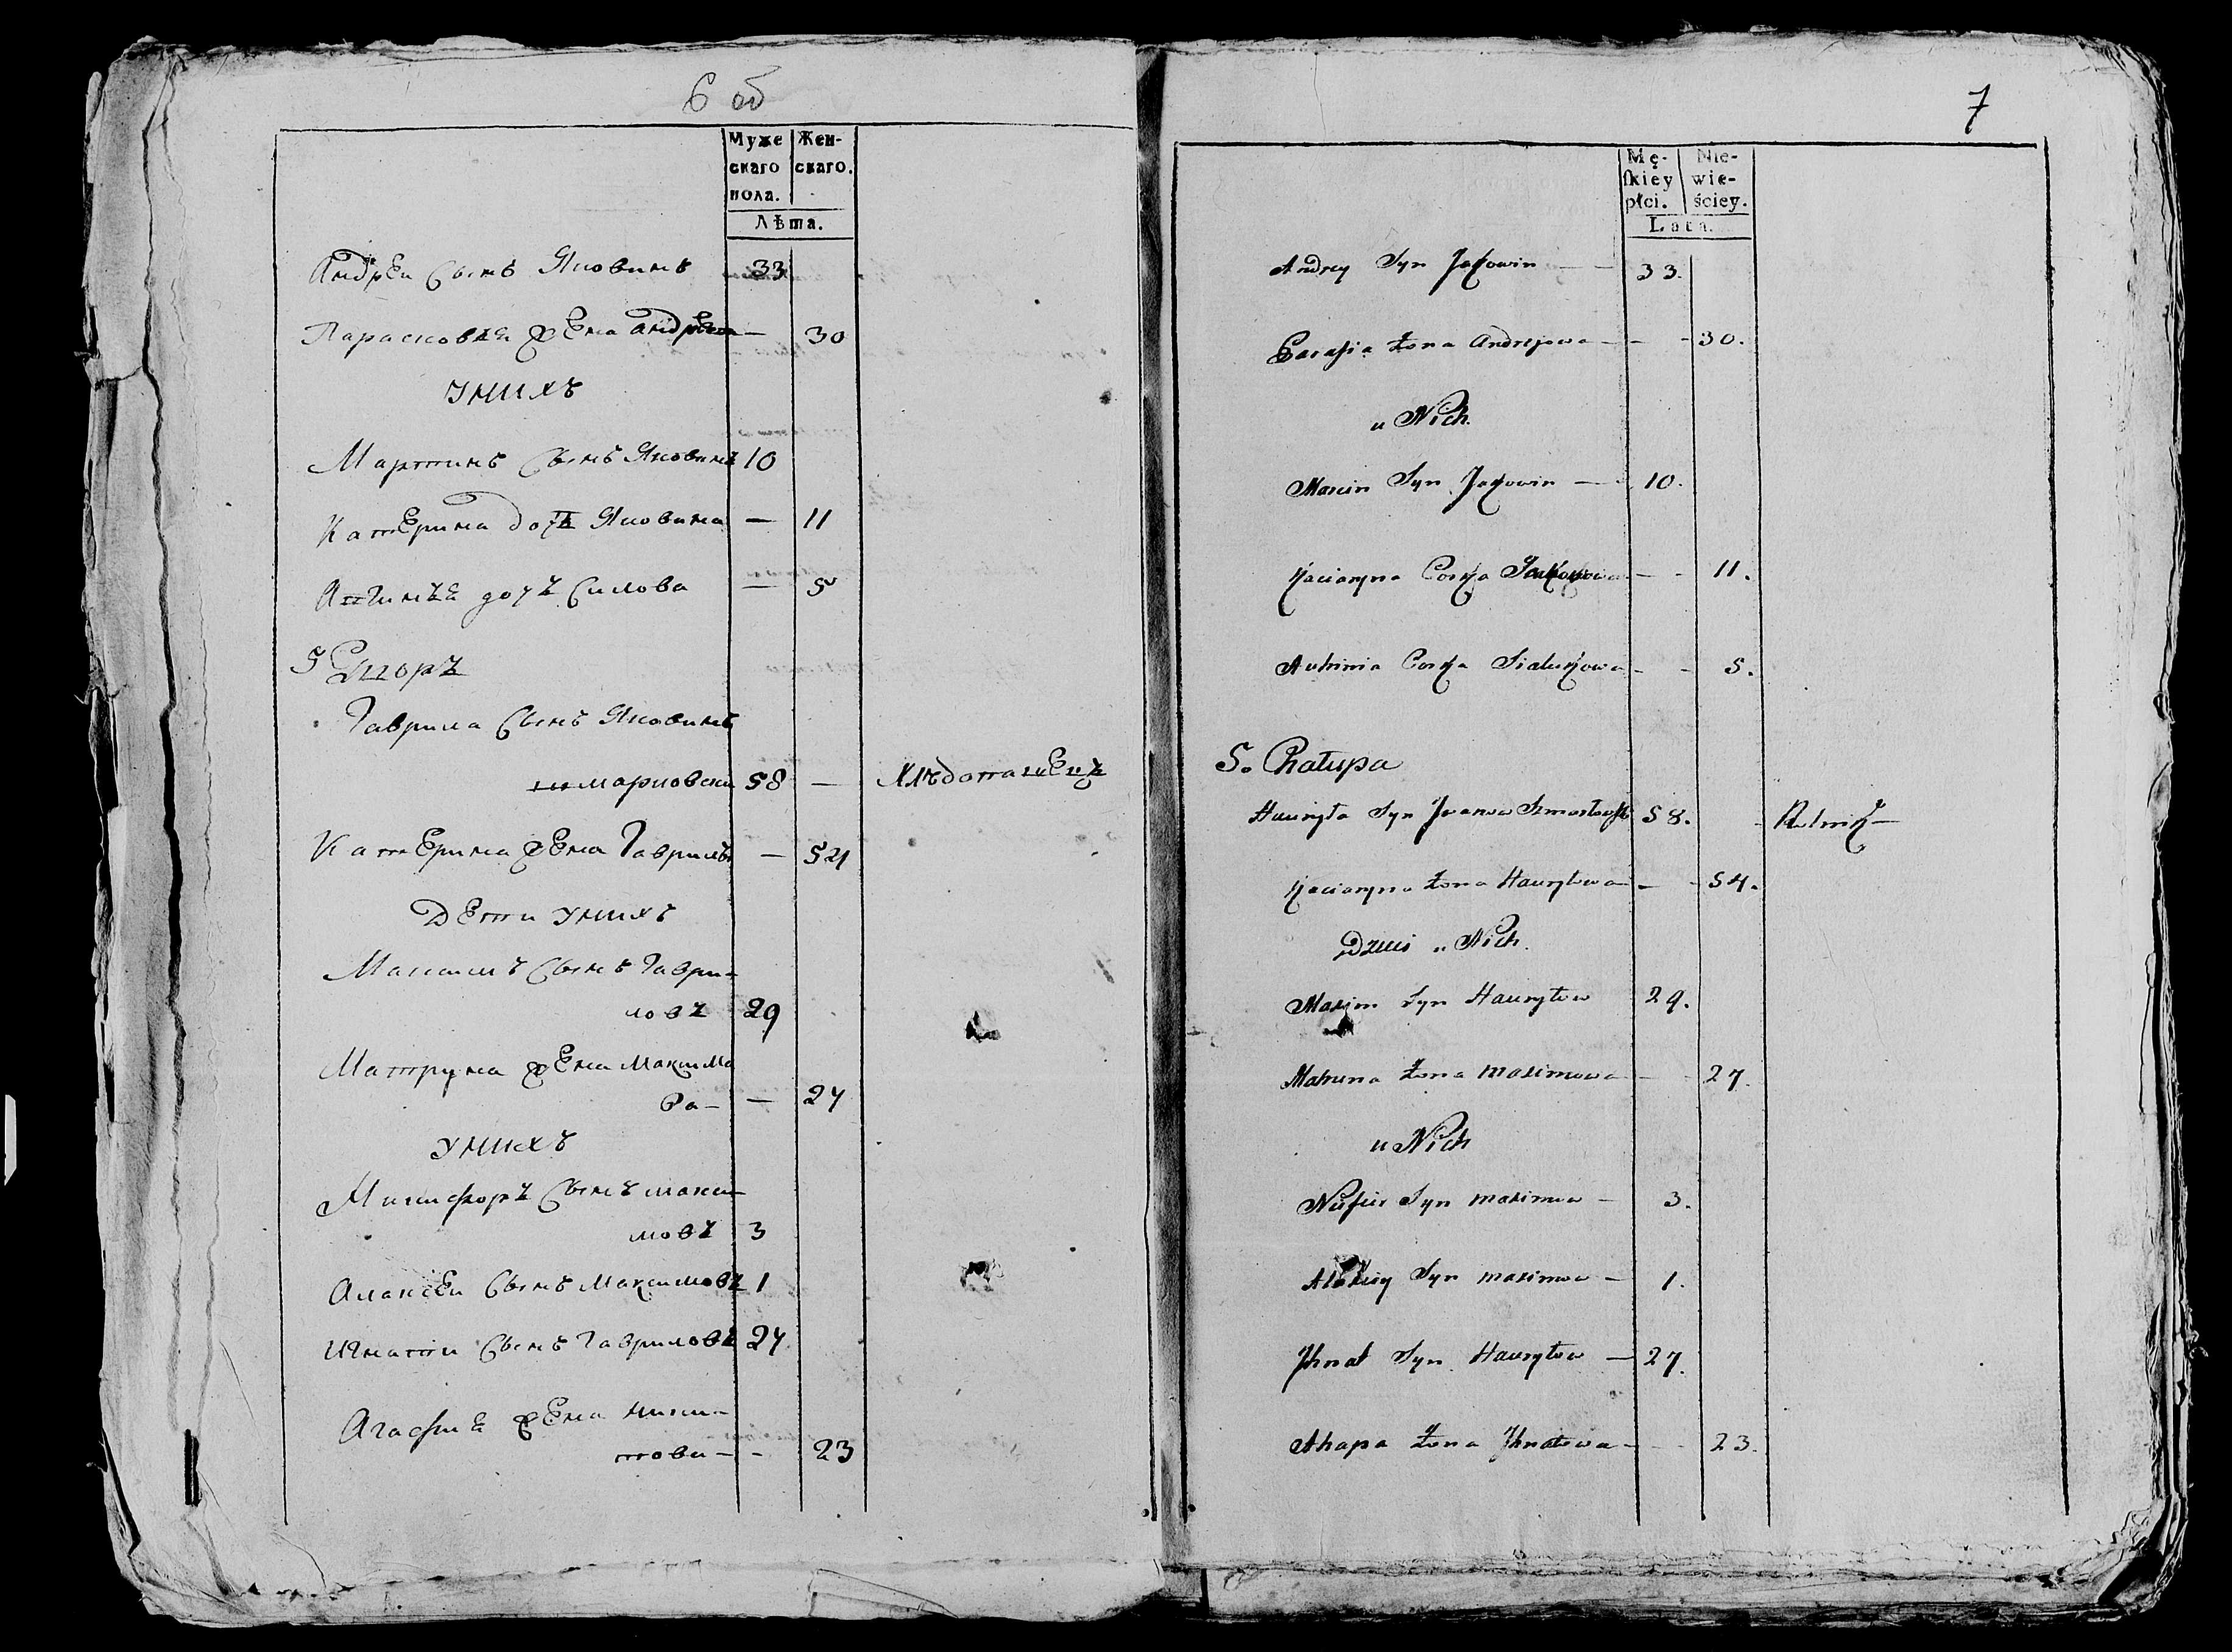 6 об
Муже
скаго
пола.
Жен-
скаго.
Лѣта.
Андрей Сынъ Яковинъ 33
Парасковея жена Андреева — 30
У нихъ
Мартинъ Сынъ Яковинъ 10
Катерина дочь Яковина — 11
дочъ Силова — 5
5
Гаврила Сынъ Яковинъ
58 —
Катерина жена Гаврилы — 54
Дети у нихъ
Максимъ Сынъ Гаври-
ловъ 29
Матруна жена Максимо
ва — — 27
У нихъ
Никифоръ Сынъ Макси-
мовъ 3
Алаксей Сынъ Максимовъ 1
Игнатий Сынъ Гавриловъ 27
Агафия жена
това — - 23
7
Mę-
skiey
płci.
Nie-
wie-
ściey.
Lata.
Andrey Syn Jakowin — — 33.
żona Andrejowa — — - 30.
u Nich.
Marcin Syn Jakowin — 10.
Kaciaryna Corka — - 11.
Auhinia Corka — - 5.
5. Chałupa
Hauryła Syn 58. - Rolnik —
Kaciaryna żona Hauryłowa — - 54.
Dzieci u Nich.
Maxim Syn Hauryłow 29.
Matruna żona Maximowa — - 27.
u Nich
Syn Maximow — 3.
Alaxiey Syn Maximow — 1.
Jhnat Syn Hauryłow — 27.
Ahapa żona Jhnatowa — - 23.